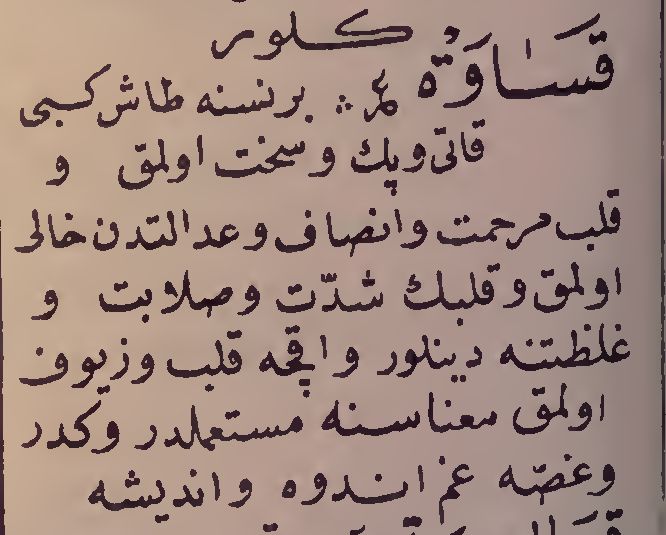 كلور
قَسَاوَةٌ عر برنسنه طاش كبى
قاتى وپك وسخت اولمق و
قلب مرحمت وانصاف وعدالتدن خالى
اولمق وقلبك شدّت وصلابت و
غلظتنه دينلور واقچه قلب وزيوف
اولمق معناسنه مستعملدر وكدر
وغصّه غم اندوه وانديشه